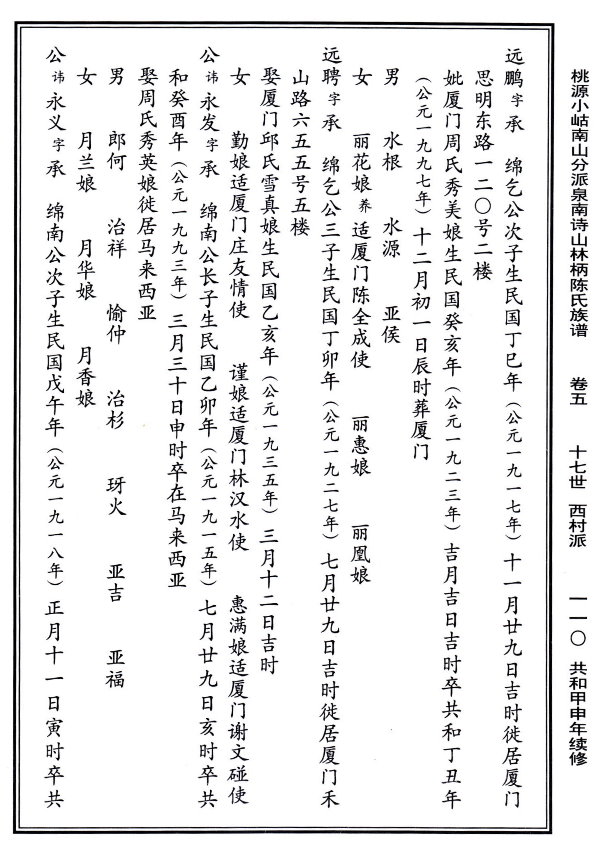 桃源小岵南山分派泉南诗山林柄陈氏族谱 卷五 十七世 西村派 一一〇 共和甲申年续修
远鹏字承 绵乞公次子生民国丁巳年(公元一九一七年)十一月廿九日吉时徙居厦门
思明东路一二〇号二楼
妣厦门周氏秀美娘生民国癸亥年(公元一九二三年)吉月吉日吉时卒共和丁丑年
(公元一九九七年)十二月初一日辰时葬厦门
男 水根 水源 亚侯
女 丽花娘养适厦门陈全成使 丽惠娘 丽凰娘
远聘字承 绵乞公三子生民国丁卯年(公元一九二七年)七月廿九日吉时徙居厦门禾
山路六五五号五楼
娶厦门邱氏雪真娘生民国乙亥年(公元一九三五年)三月十二日吉时
女 勤娘适厦门庄友情使 谨娘适厦门林汉水使 惠满娘适厦门谢文碰使
公讳永发字承 绵南公长子生民国乙卯年(公元一九一五年)七月廿九日亥时卒共
和癸酉年(公元一九九三年)三月三十日申时卒在马来西亚
娶周氏秀英娘徙居马来西亚
男 郎何 治祥 愉仲 治杉 玡火 亚吉 亚福
女 月兰娘 月华娘 月香娘
公讳永义字承 绵南公次子生民国戊午年(公元一九一八年)正月十一日寅时卒共